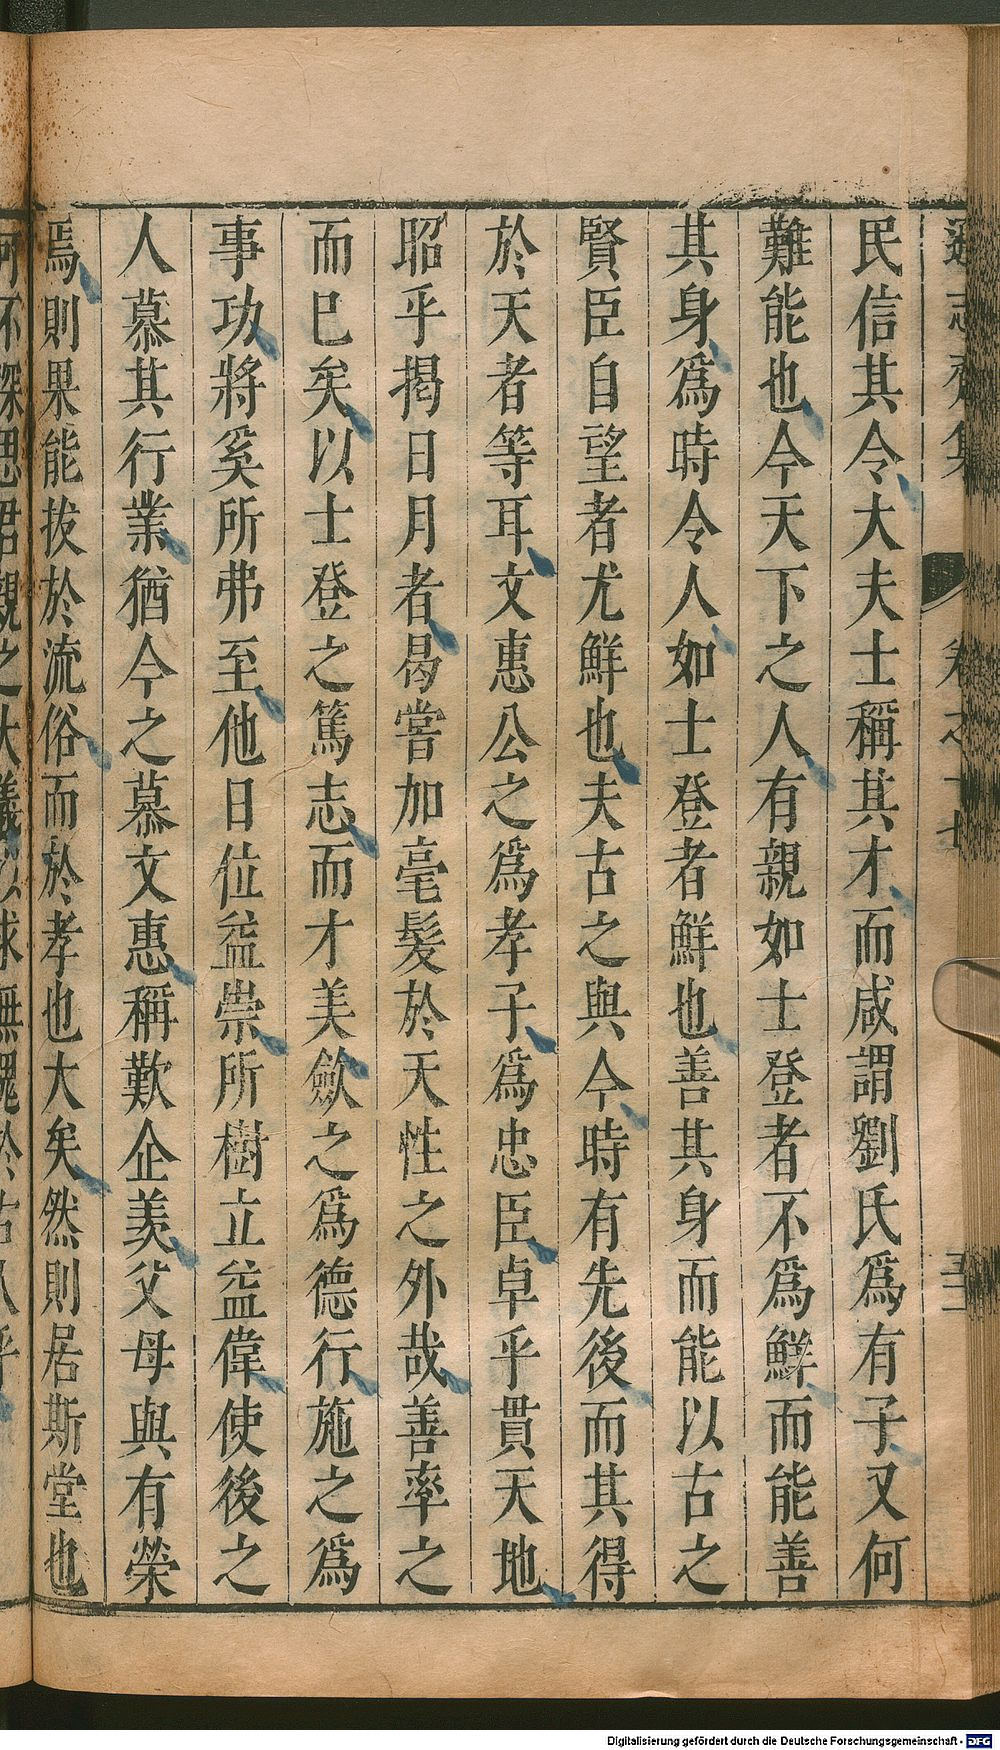 遜志齋集 卷之十七
民信其令大夫士稱其才而咸謂劉氏爲有子又何
難能也今天下之人有親如士登者不爲鮮而能善
其身爲時令人如士登者鮮也善其身而能以古之
賢臣自望者尤鮮也夫古之與今時有先後而其得
於天者等耳文惠公之爲孝子爲忠臣卓乎貫天地
昭乎揭日月者曷嘗加毫髮於天性之外哉善率之
而已矣以士登之篤志而才美斂之爲德行施之爲
事功將奚所弗至他日位益崇所樹立益偉使後之
人慕其行業猶今之慕文惠稱歎企羨父母與有榮
焉則果能拔於流俗而於孝也大矣然則居斯堂也
何不深思君親之大義以求無愧於古人乎
Digitalisierung gefördert durch die Deutsche Forschungsgemeinschaft - DFG